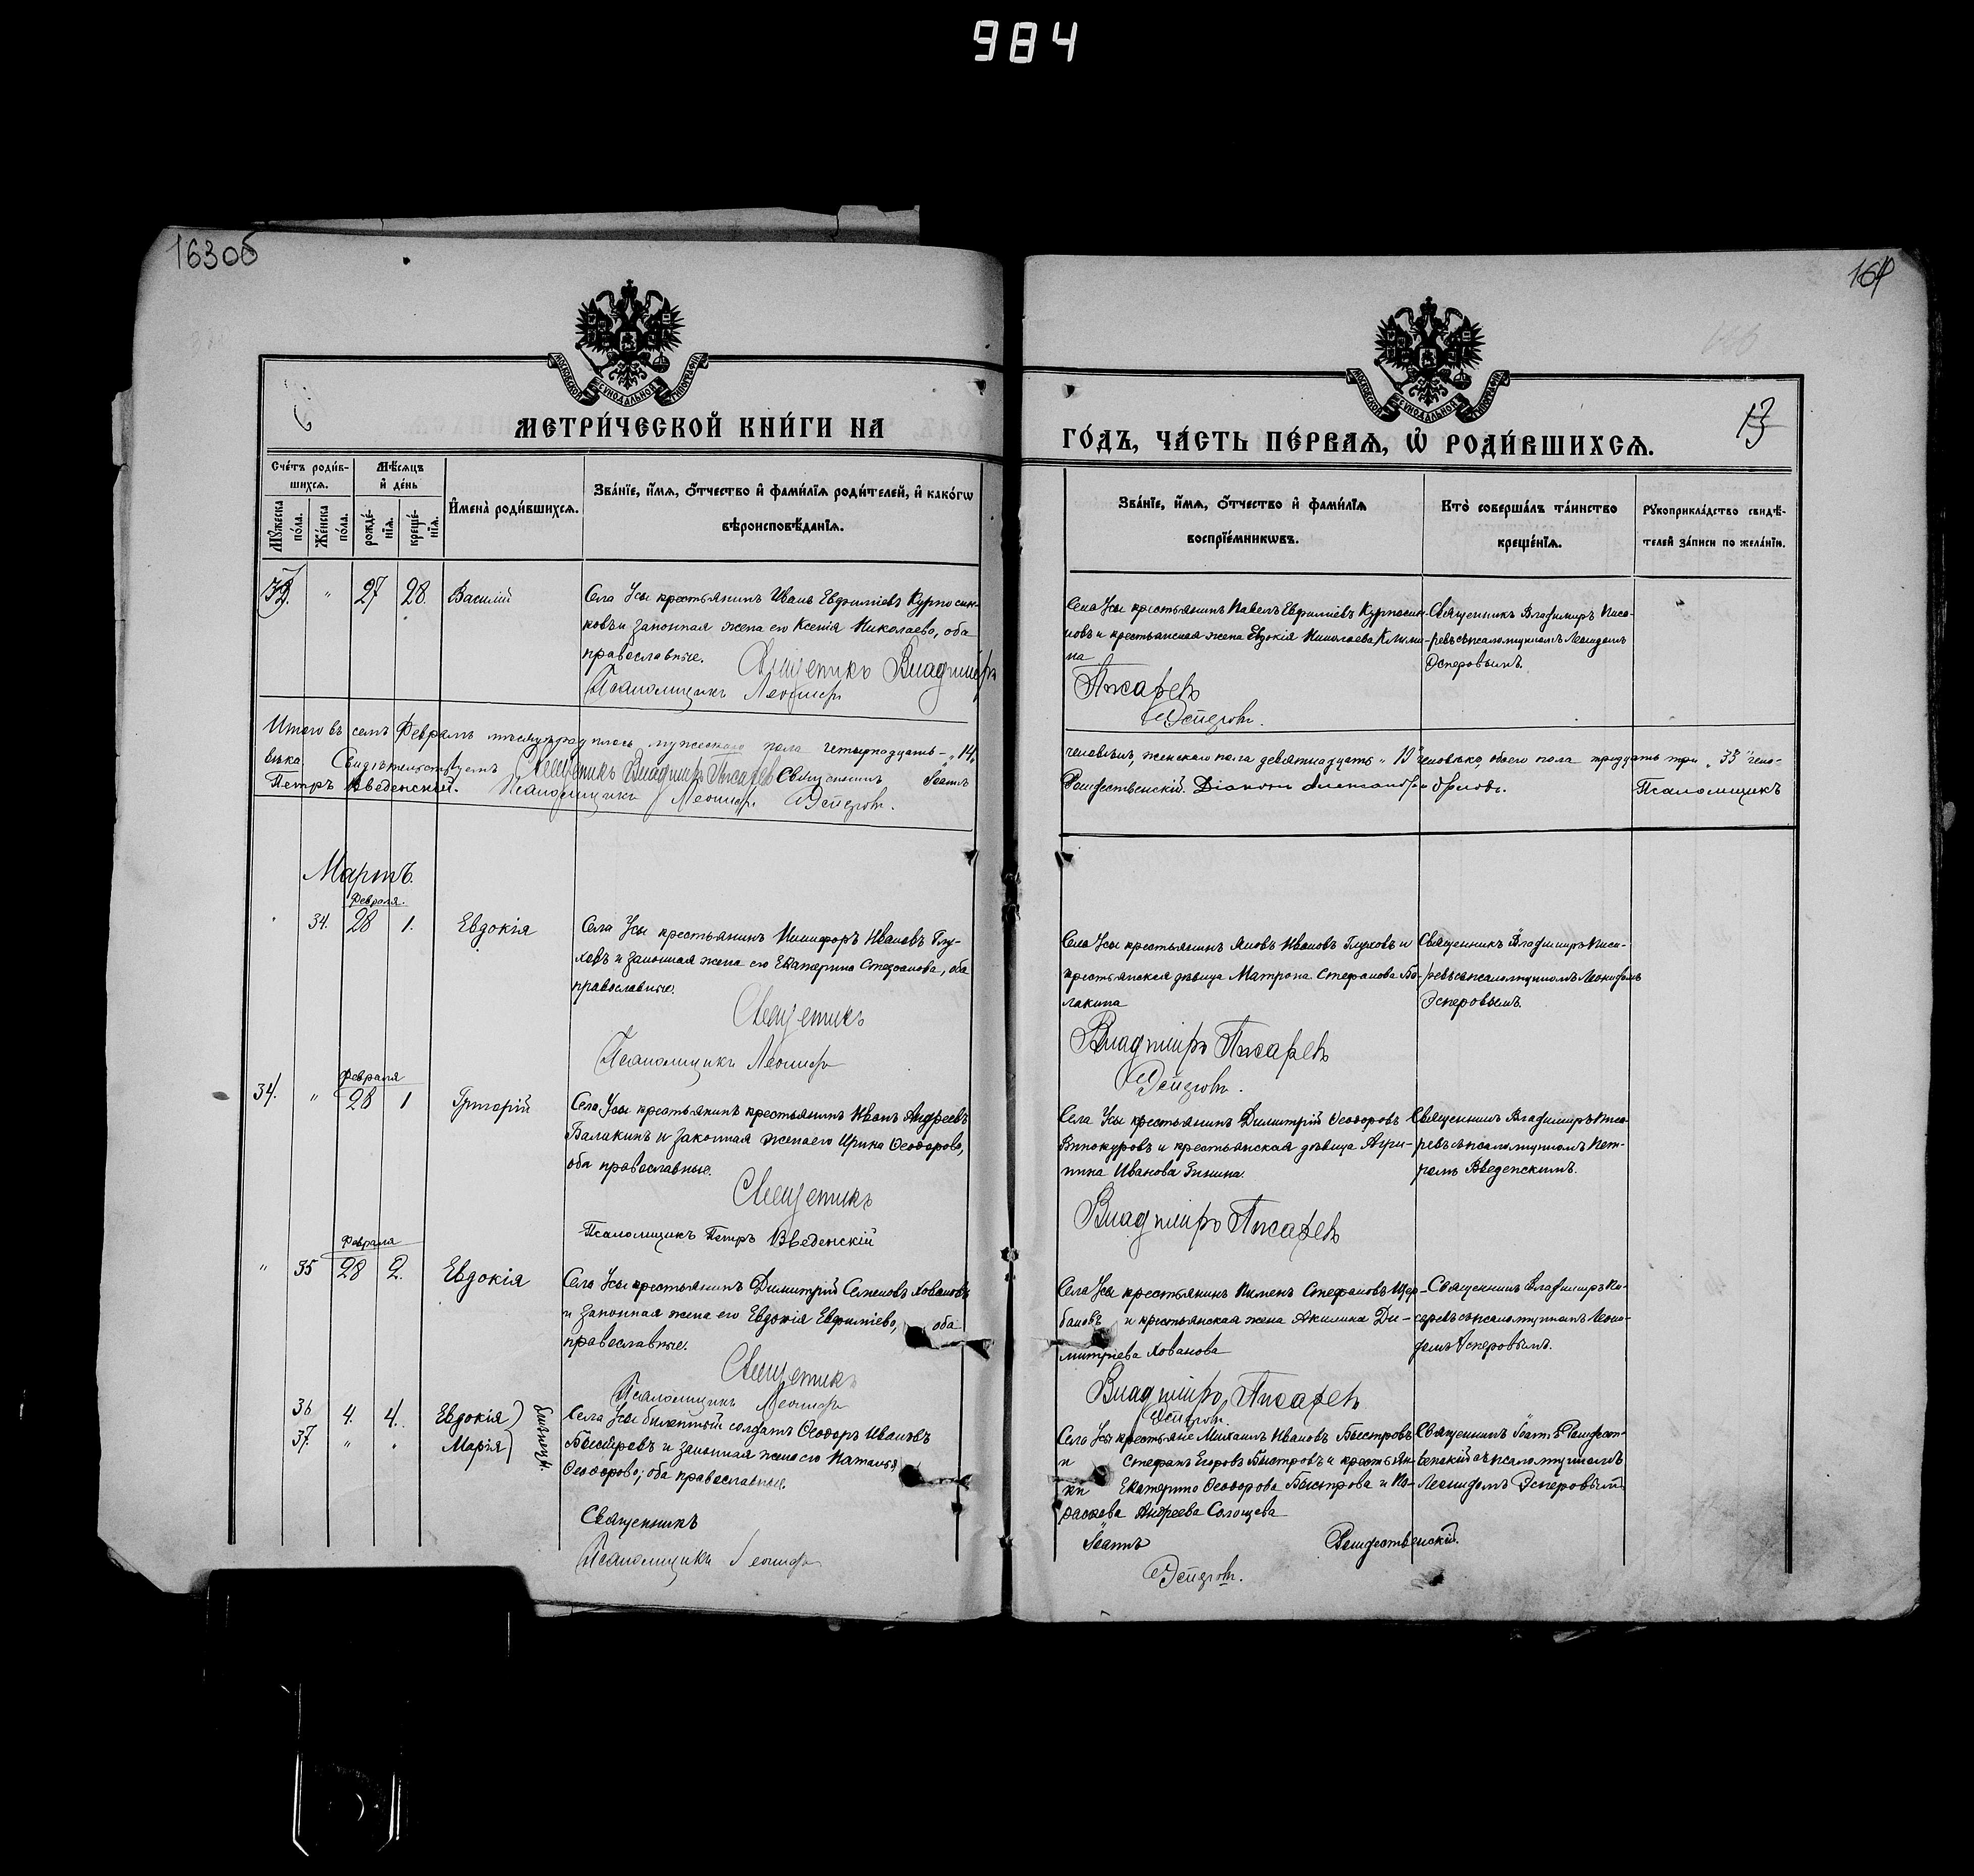 984
163об
164
МЕТРИ́ЧЕСКОЙ КНИ́ГИ НА
ГО́ДЪ, ЧА́СТЬ ПЕ́РВАѦ, Ѡ РОДИ́ВШИХСѦ.
13
Сче́тъ роди́в-
шихсѧ.
Мѣ́сѧцъ
и҆ де́нь
Мꙋ́жеска
по́ла.
Же́нска
по́ла.
рожде́-
нїѧ.
креще́-
нїѧ.
И҆мена̀ роди́вшихсѧ.
Зва́нїе, и҆́мѧ, ѻ҆́тчество и҆ фами́лїѧ роди́телей, и҆ како́гѡ
вѣроисповѣ́данїѧ.
Зва́нїе, и҆́мѧ, ѻ҆́тчество и҆ фами́лїѧ
воспрїе́мникѡвъ.
Кто̀ соверша́лъ та́инство
креще́нїѧ.
Рꙋкоприкла́дство свидѣ́-
телей за́писи по жела́нїю.
" 27 28. Василій
Села Усы крестьянинъ Иванъ Евфиміевъ Курносен-
ковъ и законная жена его Ксенія Николаева, оба
православные.
Священникъ Владиміръ
Псаломщикъ Леонидъ
Села Усы крестьянинъ Павелъ Евфиміевъ Курносен-
ковъ и крестьянская жена Евдокія Николаева
на
Писаревъ
Эсперовъ.
Священникъ Владиміръ Писа-
ревъ съ псаломщикомъ Леонидомъ
Эсперовымъ.
Итого въ семъ Февралѣ мѣсяцѣ родилось мужескаго пола четырнадцать - "14"
человѣкъ, женскаго пола девятнадцать "19" человѣкъ, обоего пола тридцать три "33" чело-
вѣка. Свидѣтельствуемъ Священникъ Владиміръ Писаревъ Священникъ Іоаннъ
Рождественскій. Діаконъ Александръ Орловъ. Псаломщикъ
Петръ Введенскій. Псаломщикъ Леонидъ Эсперовъ.
Мартъ.
Февраля.
34. 28 1. Евдокія
Села Усы крестьянинъ Никифоръ Ивановъ Глу-
ховъ и законная жена его Екатерина Стефанова, оба
православные.
Священникъ
Псаломщикъ Леонидъ
Села Усы крестьянинъ Яковъ Ивановъ Глуховъ и
крестьянская дѣвица Матрона Стефанова Ба-
лакина
Владиміръ Писаревъ
Эсперовъ.
Священникъ Владиміръ Писа-
ревъ съ псаломщикомъ Леонидомъ
Эсперовымъ.
Февраля
34. " 28 1 Григорій
Села Усы крестьянинъ крестьянинъ Иванъ Андреевъ
Балакинъ и законная жена его Ирина Ѳеодорова,
оба православные.
Священникъ
Псаломщикъ Петръ Введенскій
Села Усы крестьянинъ Димитрій Ѳеодоровъ
Винокуровъ и крестьянская дѣвица Агри-
пина Иванова Зинина.
Владиміръ Писаревъ
Священникъ Владиміръ Писа-
ревъ съ псаломщикомъ Пет-
ромъ Введенскимъ.
Февраля
" 35 28 2. Евдокія
Села Усы крестьянинъ Димитрій Семеновъ Ховановъ
и законная жена его Евдокія Евфиміева, оба
православные.
Священникъ
Псаломщикъ Леонидъ
Села Усы крестьянинъ Пименъ Стефановъ Щер-
баковъ и крестьянская жена Акилина Ди-
митріева Хованова
Владиміръ Писаревъ
Эсперовъ.
Священникъ Владиміръ Пи-
саревъ съ псаломщикомъ Леони-
домъ Эсперовымъ.
36 4. 4. Евдокія
37. " " Марія
близнецы.
Села Усы билетный солдатъ Ѳеодоръ Ивановъ
Быстровъ и законная жена его Наталья
Ѳеодорова, оба православные.
Священникъ
Псаломщикъ Леонидъ
Села Усы крестьяне Михаилъ Ивановъ Быстровъ
и Стефанъ Егоровъ Быстровъ и крестьян-
ки Екатерина Ѳеодорова Быстрова и Па-
раскева Андреева Солощева
Іоаннъ Рождественскій.
Эсперовъ.
Священникъ Іоаннъ Рождест-
венскій съ псаломщикомъ
Леонидомъ Эсперовымъ